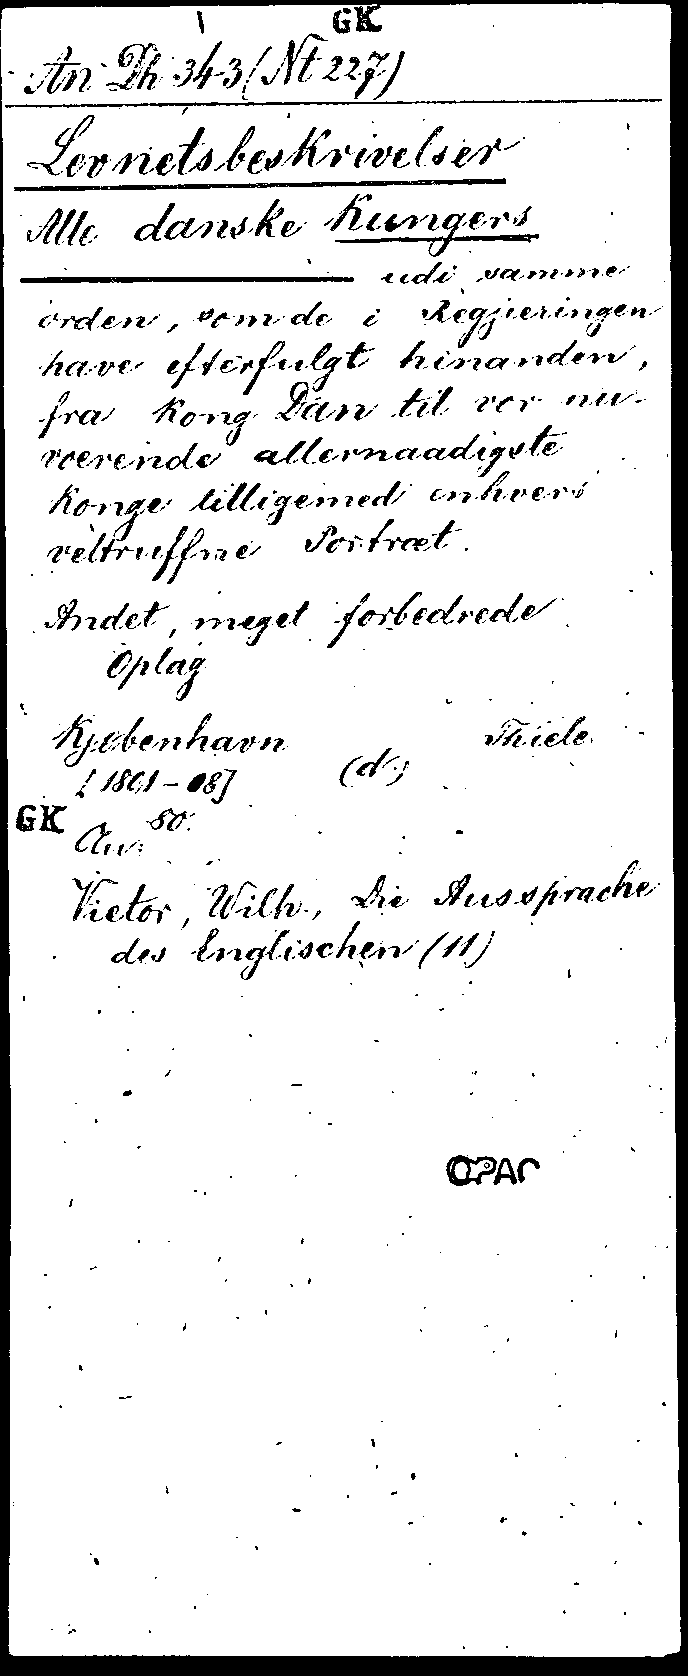 GK
An Dh 343 (Nt 227)
Levnetsbeskrivelser
Alle danske Kungers
udi samme
orden, som de i Regjieringen
have efterfulgt hinanden,
fra Kong Dan til vor nu-
værende allernaadigste
Konge tilligemed enhvers
veltruffne Portræt.
Andet, meget forbedrede
Oplag
Kjøbenhavn Thiele
[1801-08] (d.)
GK 80.
An:
Vietor, Wilh., Die Aussprache
des Englischen (11)
OPAC